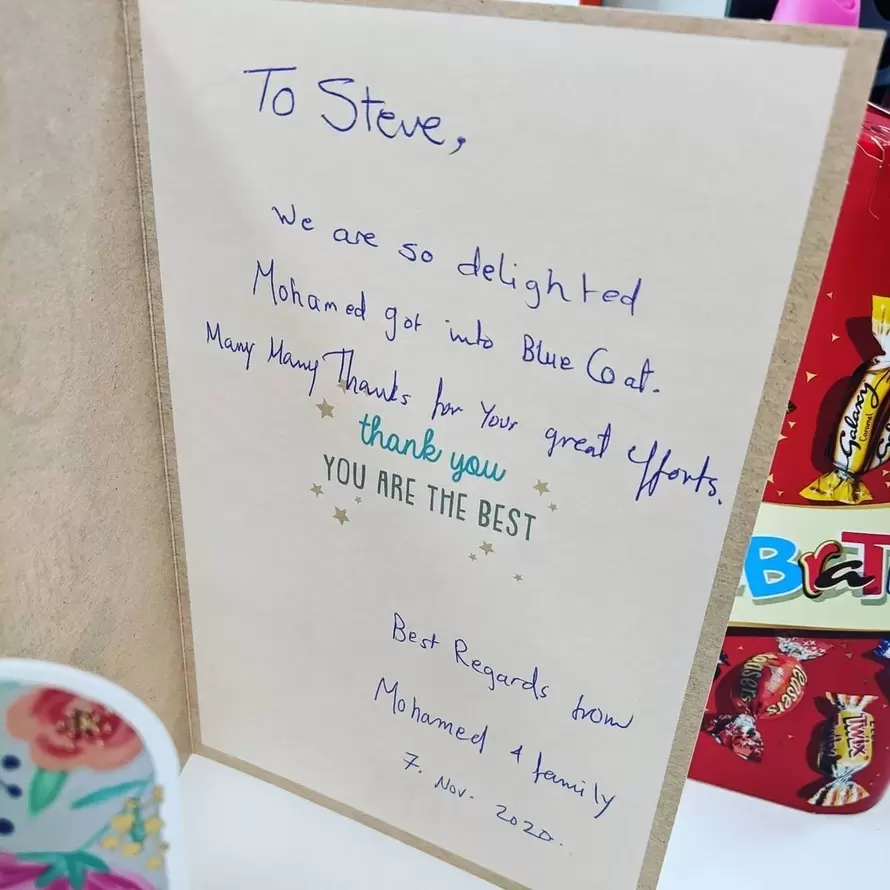 To Steve,
We are so delighted
Mohamed got into Blue Coat.
Many Many Thanks for Your great efforts.
thank you
YOU ARE THE BEST
Best Regards from
Mohamed & family
7. Nov. 2020.
Galaxy
Caramel
BraT
TWIX